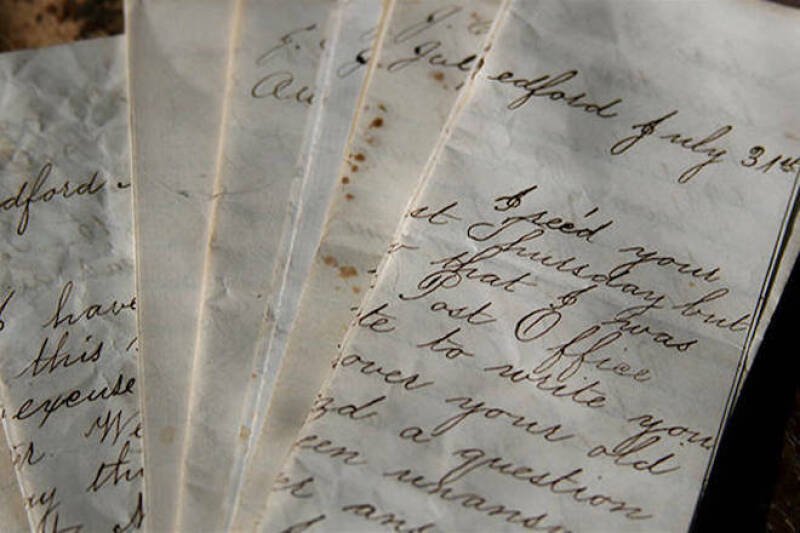 dford
I have
this
excuse
r. We
Au
J. Jul
edford July 31st
I rec'd your
st Thursday but
that I was
Post Office
te to write you
over your old
nd a question
een unansw
er ans